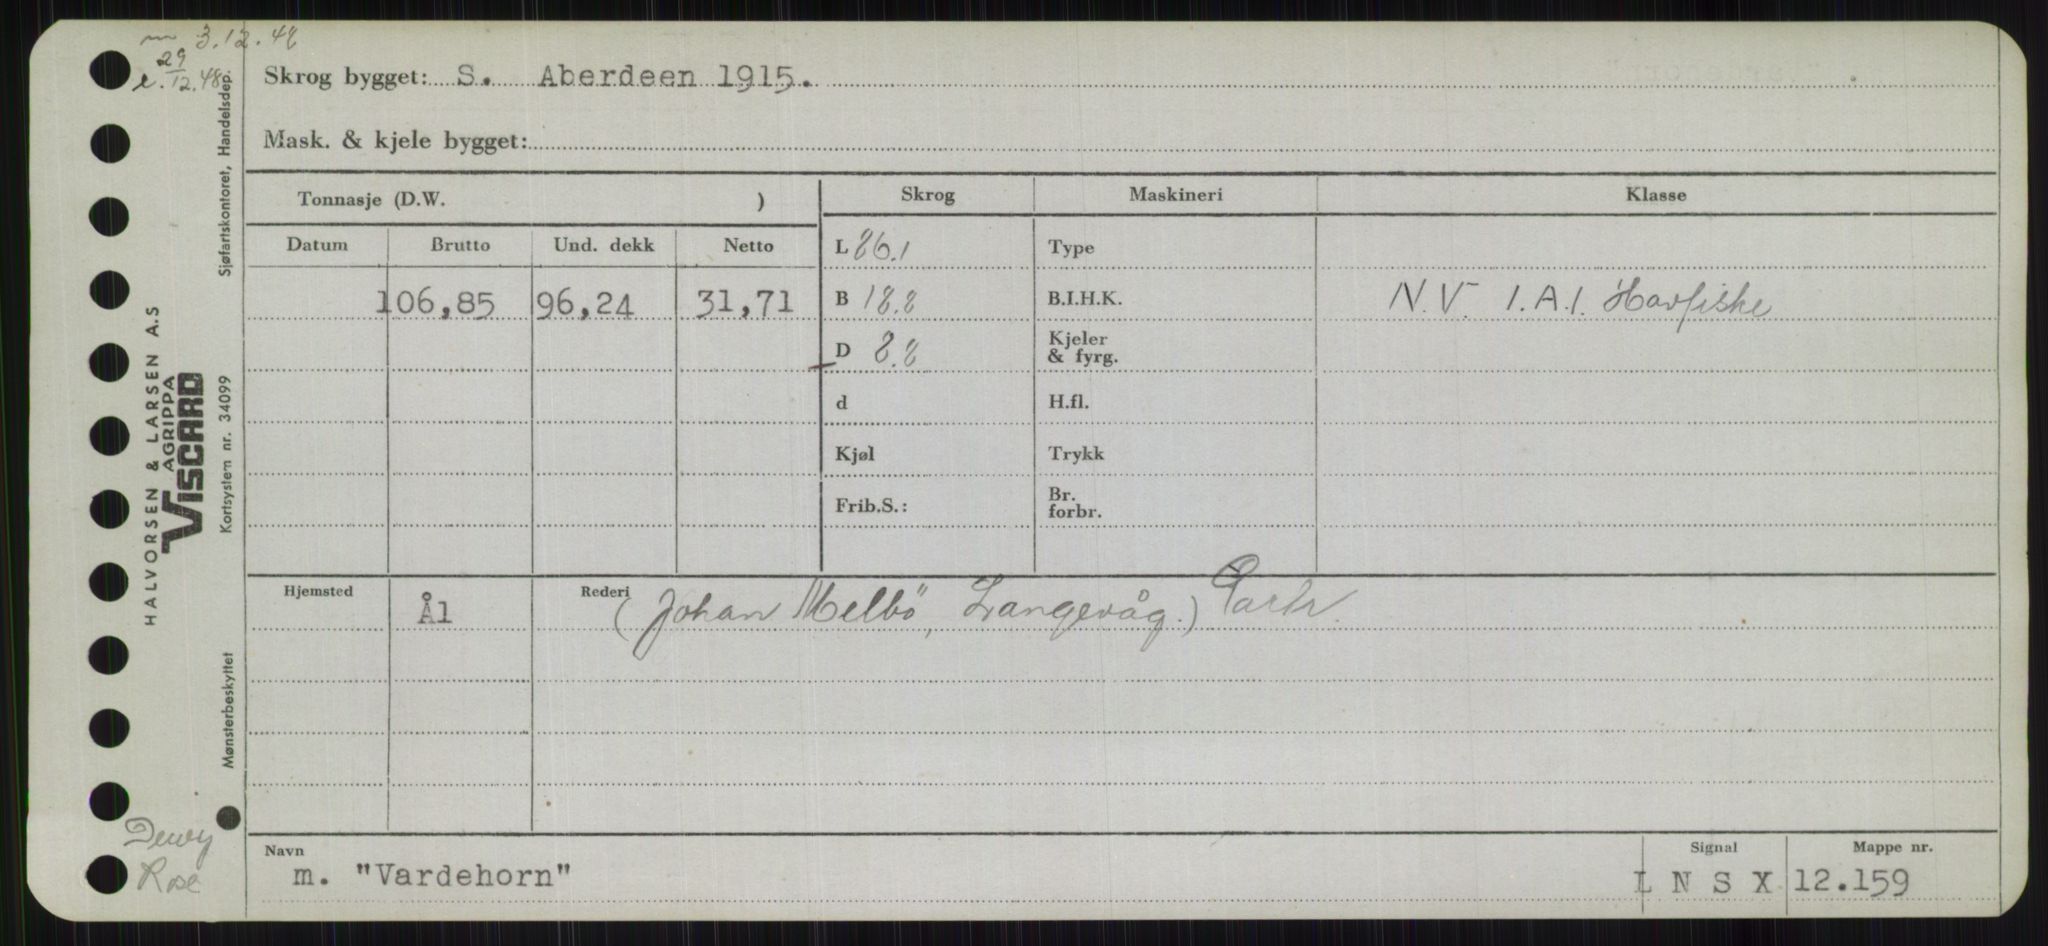 3.12.48
29
e. 12.48
Skrog bygget: S. Aberdeen 1915.
Mask. & kjele bygget:
Tonnasje (D.W. )
Skrog
Maskineri
Klasse
Datum Brutto Und. dekk Netto
L 86.1
Type
106,85 96,24 31,71
B 18.8
B.I.H.K.
N.V. 1.A.1. Havfiske
D 8.8
Kjeler
& fyrg.
d
H.fl.
Kjøl
Trykk
Frib.S.:
Br.
forbr.
Hjemsted
Ål
Rederi
(Johan Melbö, Langevåg.) Partr.
Navn
m. "Vardehorn"
Signal
L N S X
Mappe nr.
12.159
HALVORSEN & LARSEN A.S
AGRIPPA
VISCARD
Sjøfartskontoret, Handelsdep.
Kortsystem nr. 34099
Mønsterbeskyttet
Dewy
Rose